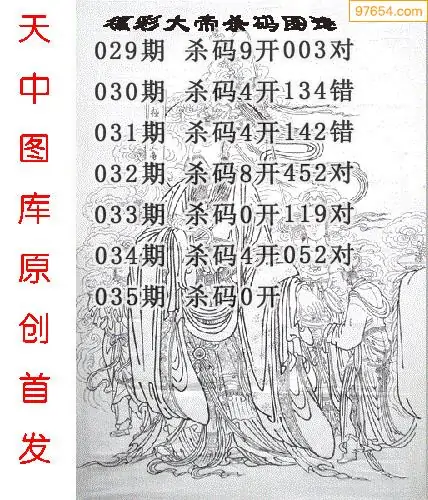 97654.com
福彩大帝杀码图迷
029期 杀码9开003对
030期 杀码4开134错
031期 杀码4开142错
032期 杀码8开452对
033期 杀码0开119对
034期 杀码4开052对
035期 杀码0开
天中图库原创首发